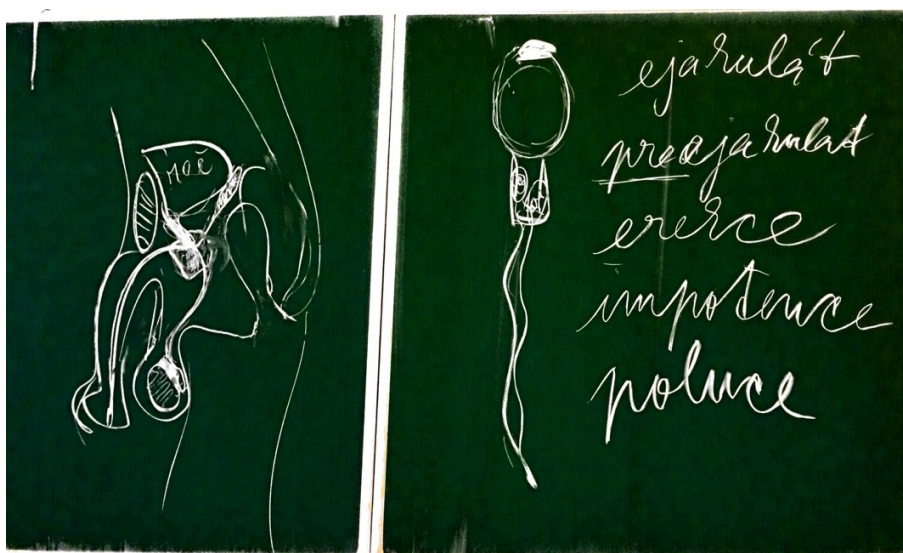 moč
ejakulát
preejakulat
erekce
impotence
poluce